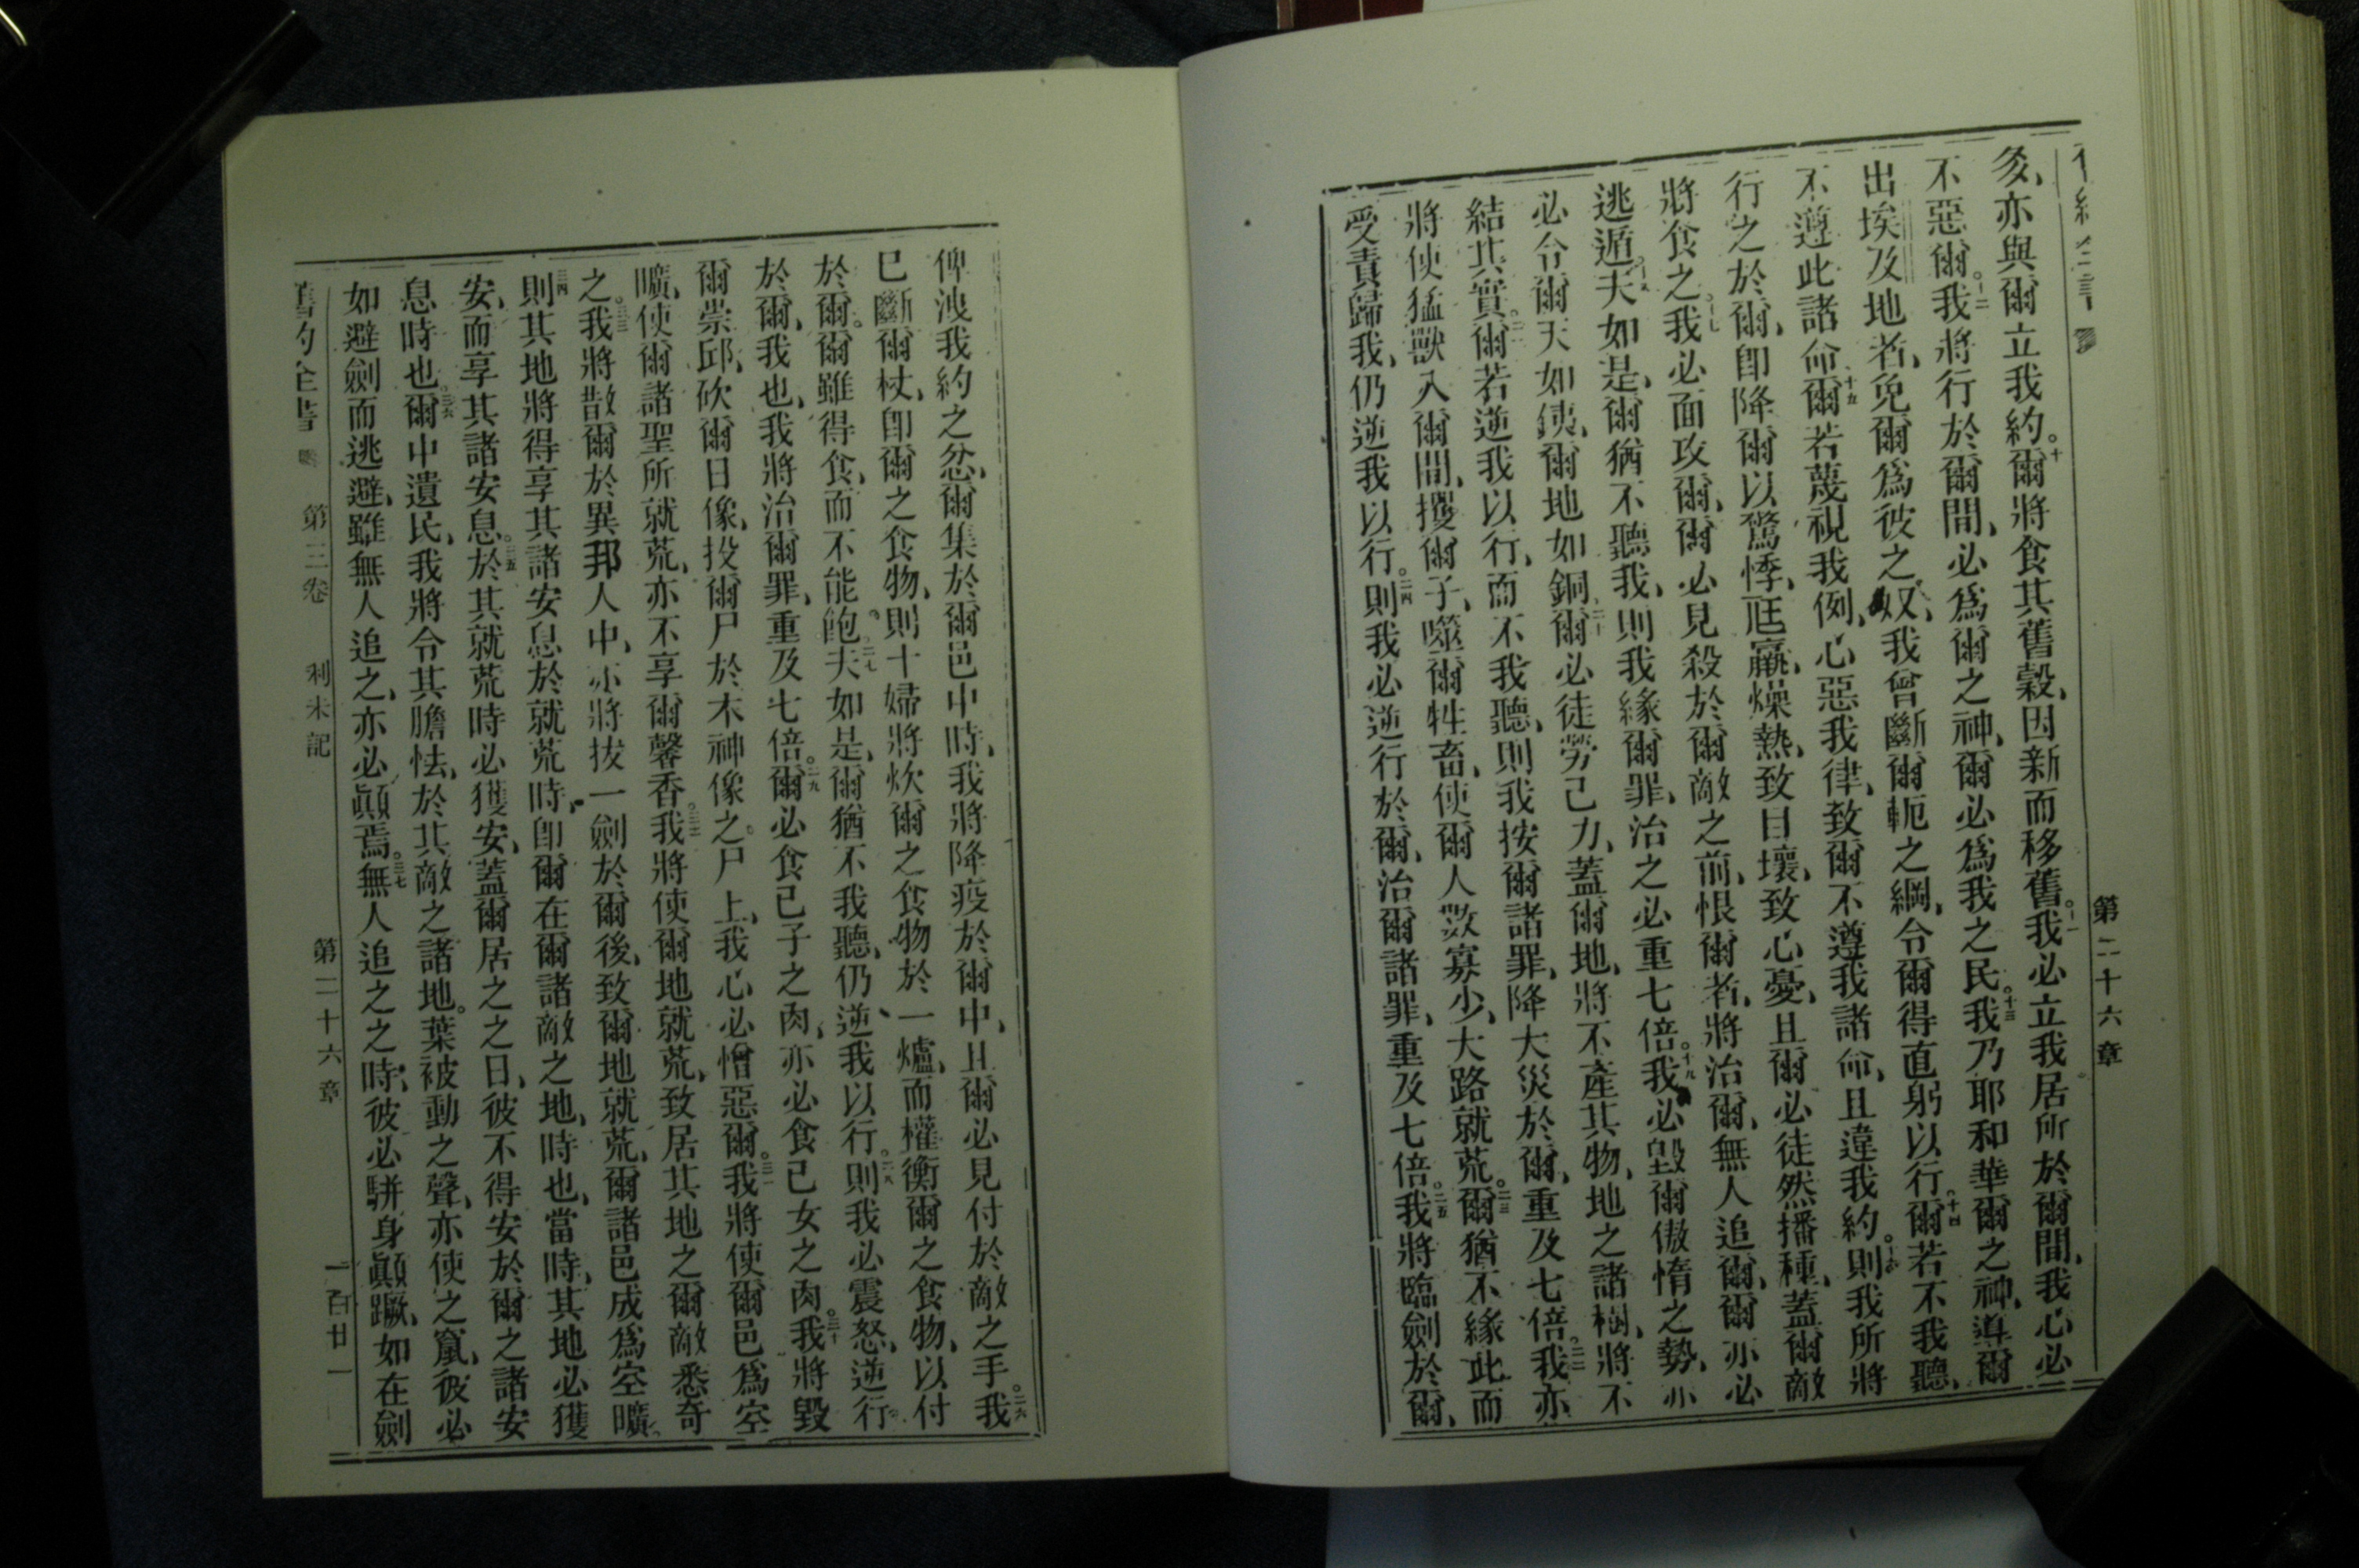 第二十六章
亦與爾立我約。十爾將食其舊穀、因新而移舊。十一我必立我居所於爾間、我心必
不惡爾。十二我將行於爾間、必爲爾之神、爾必爲我之民。十三我乃耶和華爾之神、導爾
出埃及地者、免爾爲彼之奴、我曾斷爾軛之綱、令爾得直躬以行。十四爾若不我聽、
不遵此諸命、十五爾若蔑視我例、心惡我律、致爾不遵我諸命、且違我約。十六則我所將
行之於爾、卽降爾以驚悸、尫羸、燥熱、致目壞、致心憂、且爾必徒然播種、蓋爾敵
將食之。十七我必面攻爾、爾必見殺於爾敵之前、恨爾者、將治爾、無人追爾、爾亦必
逃遁。十八夫如是、爾猶不聽我、則我緣爾罪、治之必重七倍。十九我必毀爾傲惰之勢、亦
必令爾天如銕、爾地如銅、二十爾必徒勞己力、蓋爾地、將不產其物、地之諸樹、將不
結其實。二一爾若逆我以行、而不我聽、則我按爾諸罪、降大災於爾、重及七倍。二二我亦
將使猛獸入爾間、攫爾子、噬爾牲畜、使爾人數寡少、大路就荒。二三爾猶不緣此而
受責歸我、仍逆我以行。二四則我必逆行於爾、治爾諸罪、重及七倍。二五我將臨劍於爾、
俾洩我約之忿、爾集於爾邑中時、我將降疫於爾中、且爾必見付於敵之手。二六我
已斷爾杖、卽爾之食物、則十婦將炊爾之食物於一爐、而權衡爾之食物、以付
於爾。爾雖得食、而不能飽。二七夫如是、爾猶不我聽、仍逆我以行。二八則我必震怒、逆行
於爾、我也、我將治爾罪、重及七倍。二九爾必食己子之肉、亦必食己女之肉。三十我將毀
爾崇邱、砍爾日像、投爾尸於木神像之尸上、我心必憎惡爾。三一我將使爾邑爲空
曠、使爾諸聖所就荒、亦不享爾馨香。三二我將使爾地就荒、致居其地之爾敵悉奇
之。三三我將散爾於異邦人中、亦將拔一劍於爾後、致爾地就荒、爾諸邑成爲空曠。
三四則其地將得享其諸安息於就荒時、卽爾在爾諸敵之地、時也、當時、其地必獲
安、而享其諸安息。三五於其就荒時必獲安、蓋爾居之之日、彼不得安於爾之諸安
息時也。三六爾中遺民、我將令其膽怯、於其敵之諸地。葉被動之聲、亦使之竄、彼必
如避劍而逃避、雖無人追之、亦必顚焉。三七無人追之之時、彼必駢身顚蹶、如在劍
舊約全書 第三卷 利未記 第二十六章 一百廿一